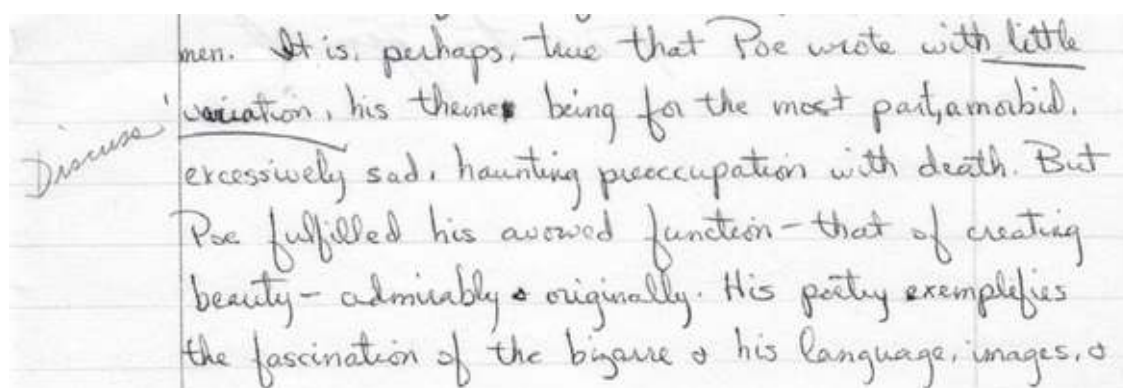 men. It is, perhaps, true that Poe wrote with little
variation, his theme being for the most part, a morbid,
Discuss
excessively sad, haunting preoccupation with death. But
Poe fulfilled his avowed function - that of creating
beauty - admirably & originally. His poetry exemplifies
the fascination of the bizarre & his language, images, &